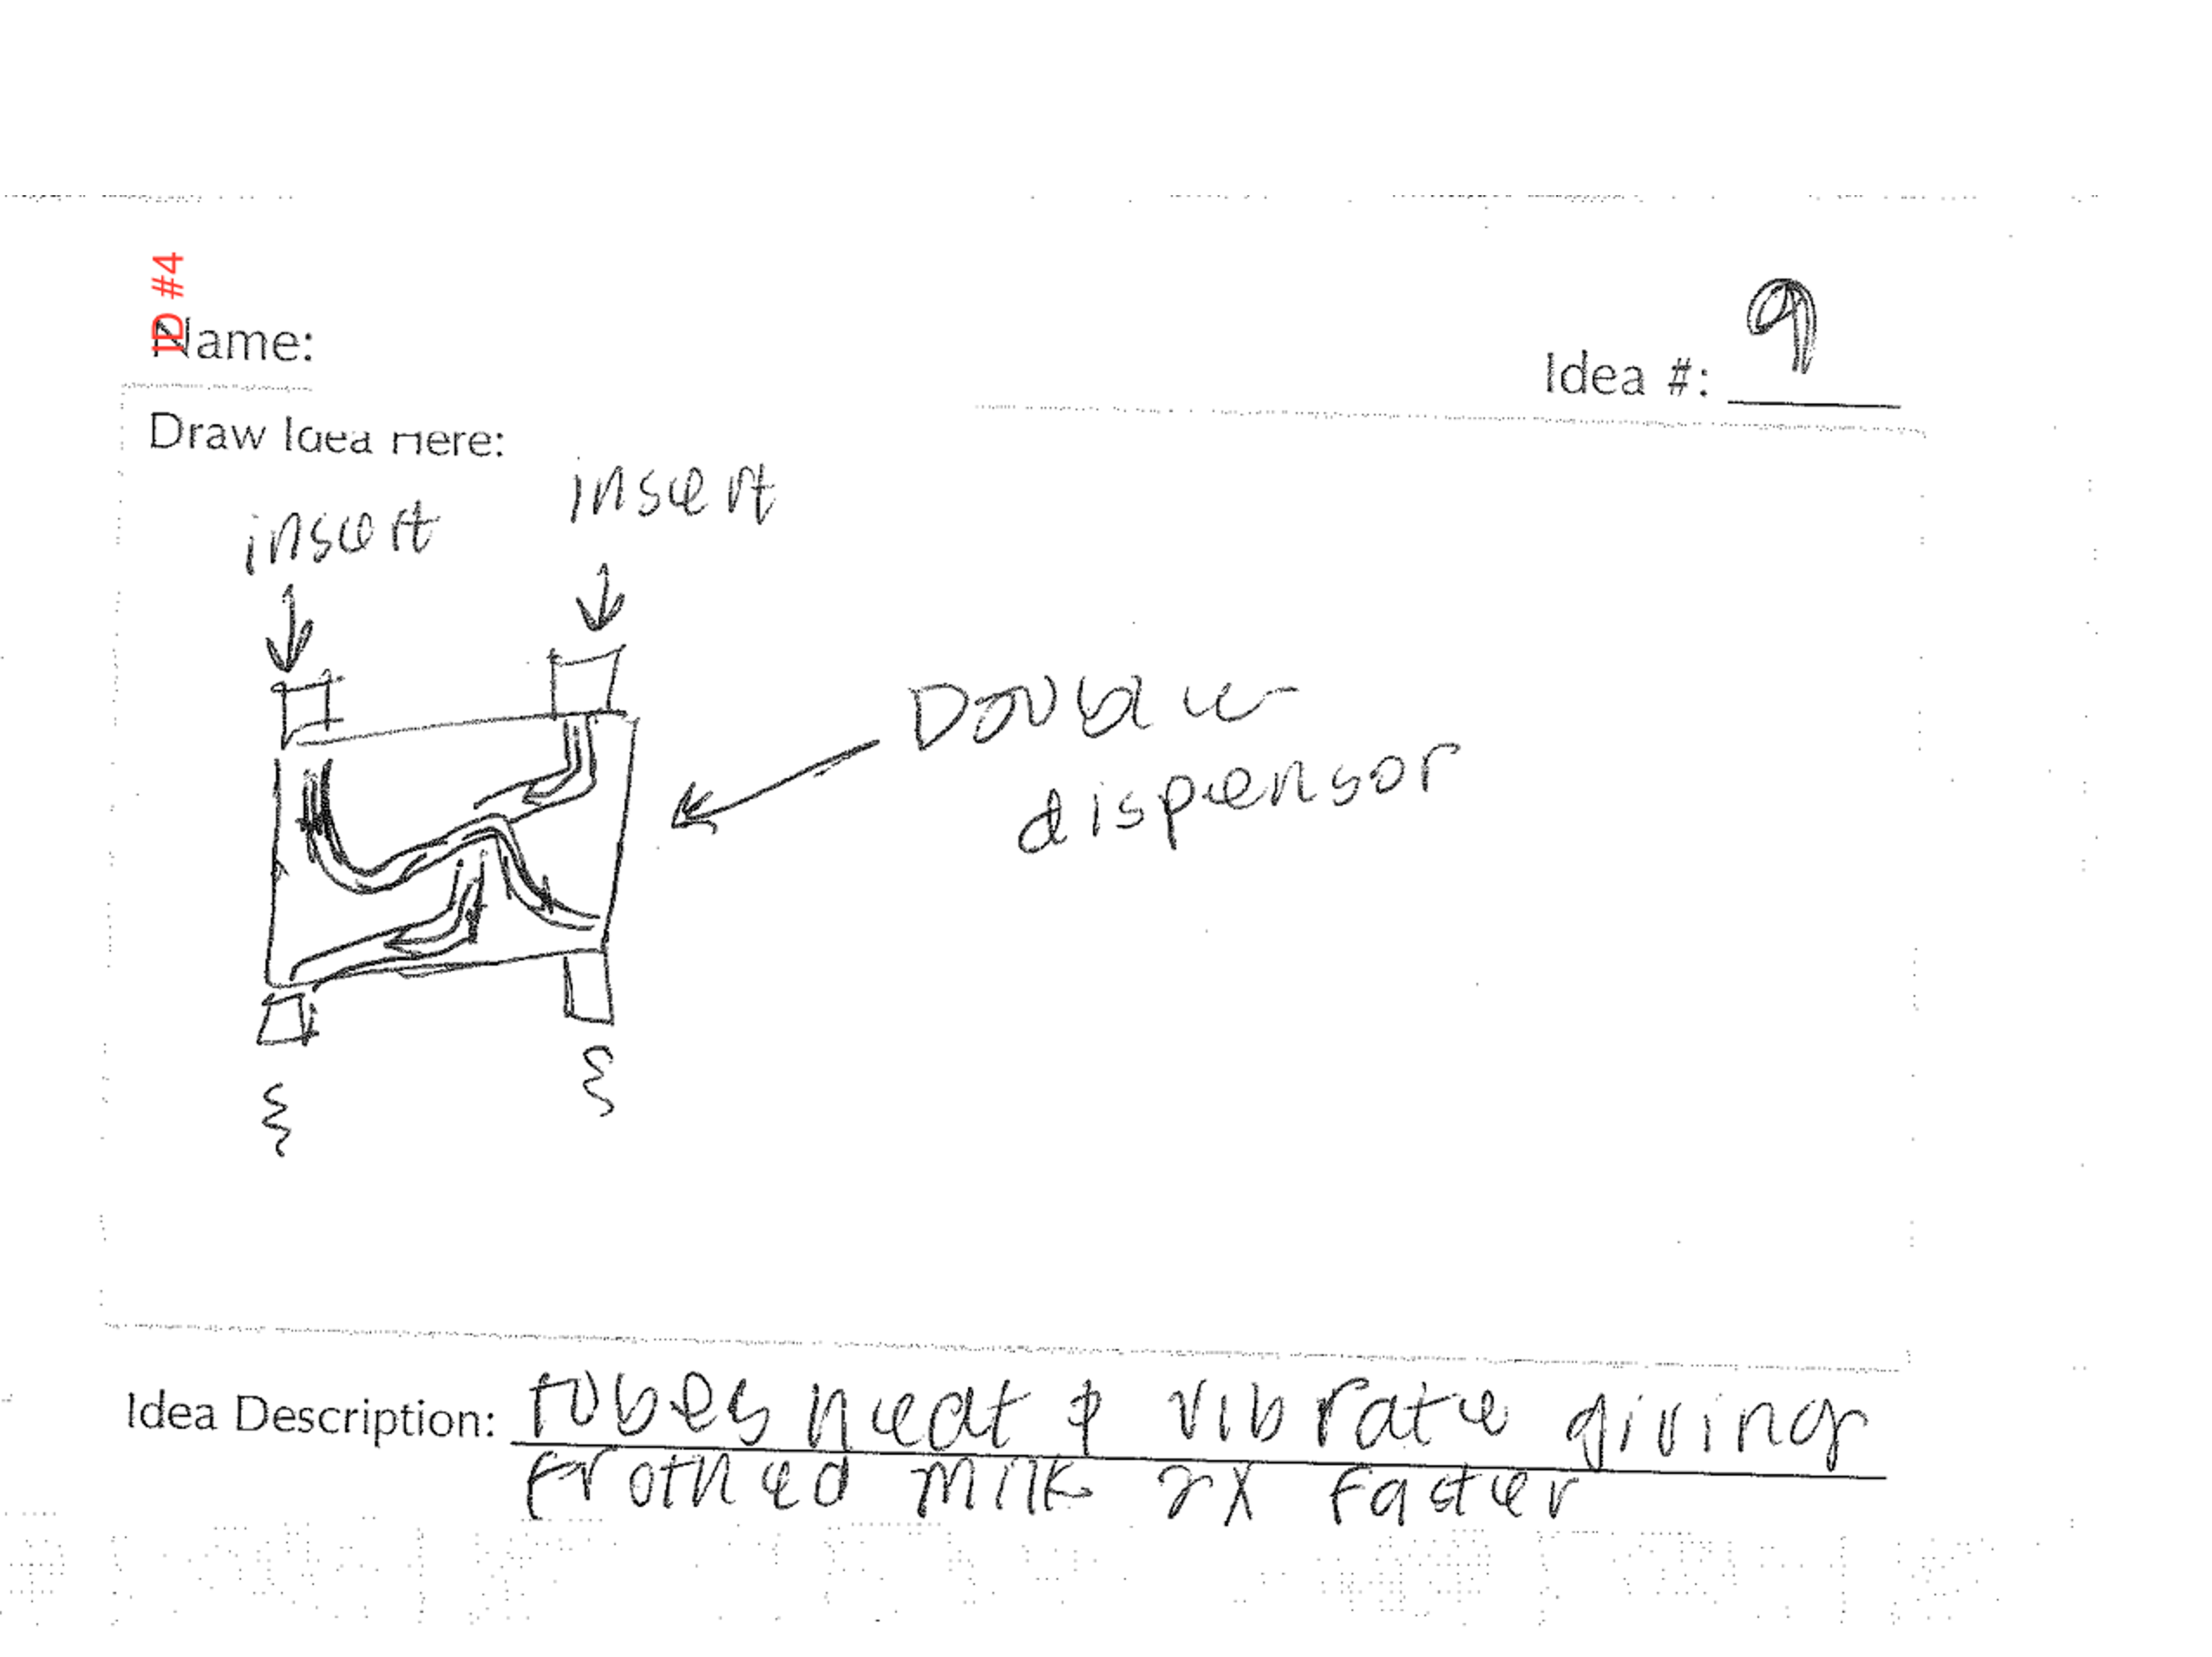 ID #4
Name:
Idea #: 9
Draw Idea Here:
insert
insert
Double
dispensor
Idea Description: tubes heat & vibrate giving
frothed milk 2x faster